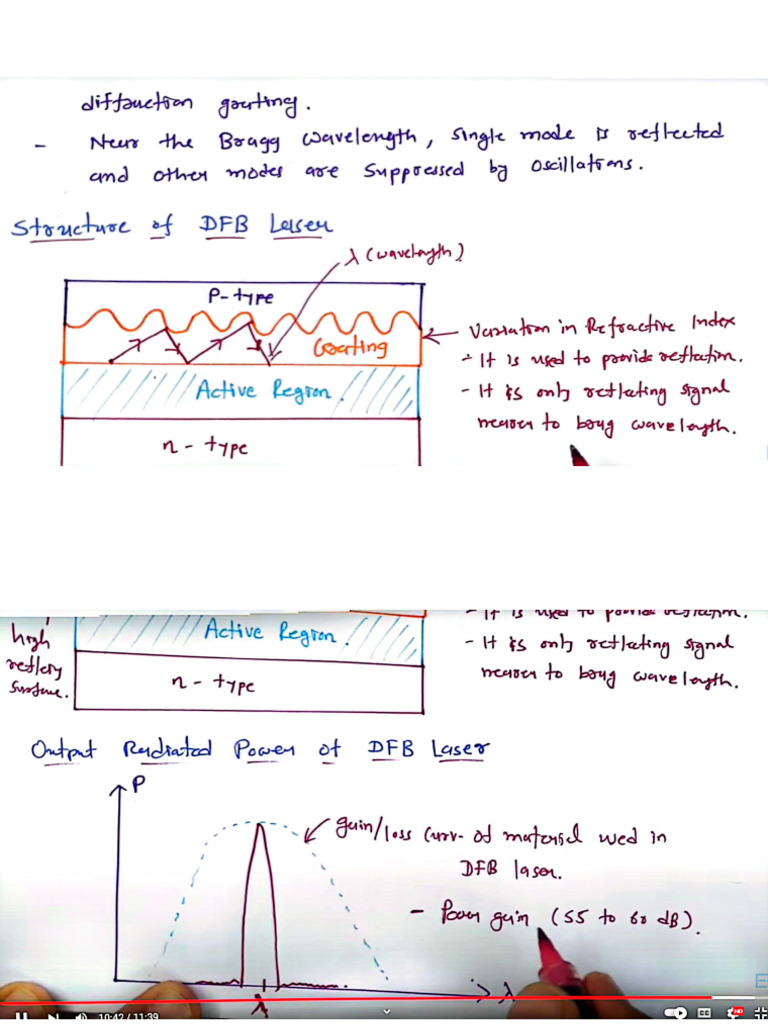 diffraction grating.
- Near the Bragg wavelength, single mode is reflected
and other modes are suppressed by oscillations.
Structure of DFB Laser
λ (wavelength)
P-type
Grating
Active Region
n-type
- Variation in Refractive Index
- It is used to provide reflation.
- It is only reflecting signal
nearer to brag wavelength.
- It is used to provide reflation.
Active Region
- It is only reflecting signal
nearer to brag wavelength.
high
surface.
n-type
Output Radiated Power of DFB Laser
P
gain/loss curv. of material used in
DFB laser.
- Power gain (55 to 60 dB).
λ
λ
10:42 / 11:39
CC
HD